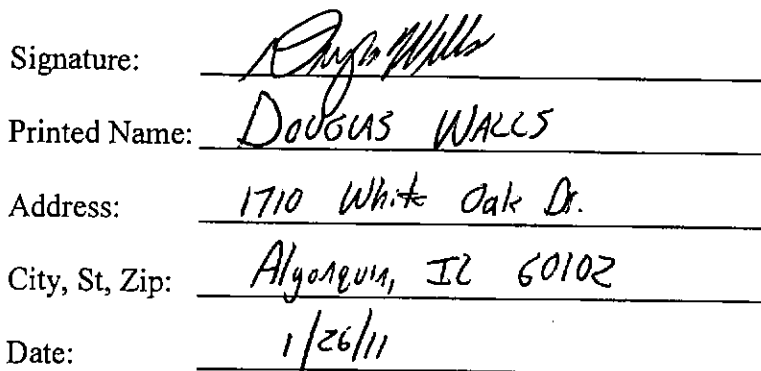 Signature:
Printed Name: DOUGLAS WALLS
Address: 1710 White Oak Dr.
City, St, Zip: Algonquin, IL 60102
Date: 1/26/11